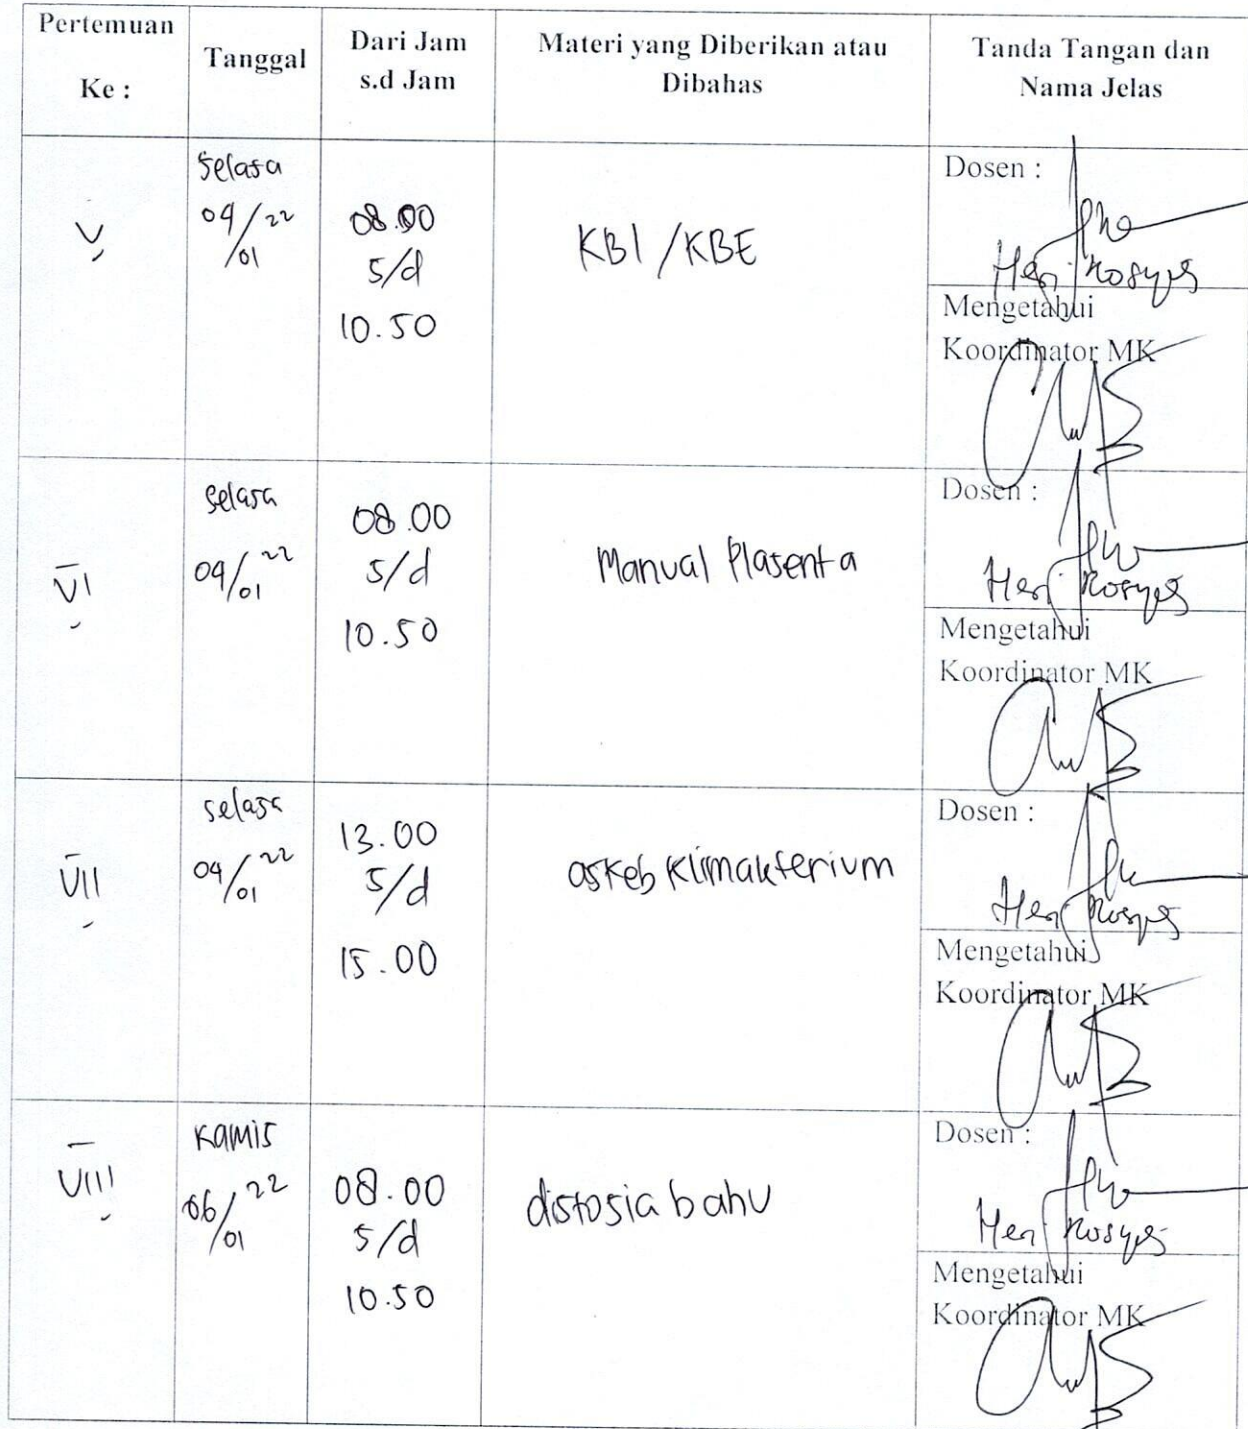 Pertemuan
Ke :
Tanggal
Dari Jam
s.d Jam
Materi yang Diberikan atau
Dibahas
Tanda Tangan dan
Nama Jelas
V
Selasa
04/01 22
08.00
s/d
10.50
KBI / KBE
Dosen :
Heri Rosyes
Mengetahui
Koordinator MK
VI
Selasa
04/01 22
08.00
s/d
10.50
Manual Plasenta
Dosen :
Heri Rosyes
Mengetahui
Koordinator MK
VII
Selasa
04/01 22
13.00
s/d
15.00
askeb klimakterium
Dosen :
Heri Rosyes
Mengetahui
Koordinator MK
VIII
Kamis
06/01 22
08.00
s/d
10.50
distosia bahu
Dosen :
Heri Rosyes
Mengetahui
Koordinator MK